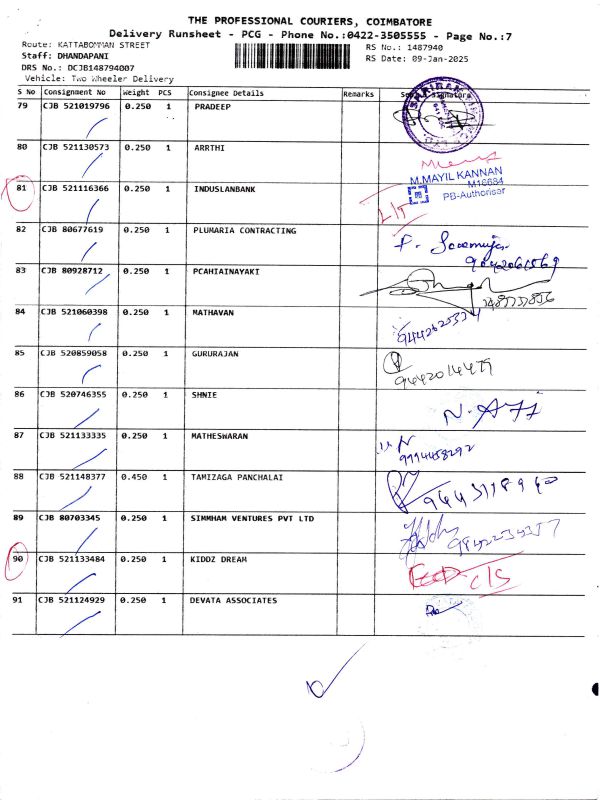 THE PROFESSIONAL COURIERS, COIMBATORE
Delivery Runsheet - PCG - Phone No.:0422-3505555 - Page No.:7
Route: KATTABOMMAN STREET
RS No.: 1487940
Staff: DHANDAPANI
RS Date: 09-Jan-2025
DRS No.: DCJB148794007
Vehicle: Two Wheeler Delivery
S No Consignment No Weight PCS Consignee Details Remarks
79 CJB 521019796 0.250 1 PRADEEP
80 CJB 521130573 0.250 1 ARRTHI
81 CJB 521116366 0.250 1 INDUSLANBANK
M.MAYIL KANNAN
M16684
PB-Authoriser
82 CJB 80677619 0.250 1 PLUMARIA CONTRACTING
9042061569
83 CJB 80928712 0.250 1 PCAHIAINAYAKI
84 CJB 521060398 0.250 1 MATHAVAN
85 CJB 520859058 0.250 1 GURURAJAN
9442014479
86 CJB 520746355 0.250 1 SHNIE
87 CJB 521133335 0.250 1 MATHESWARAN
9994458292
88 CJB 521148377 0.450 1 TAMIZAGA PANCHALAI
89 CJB 80703345 0.250 1 SIMMHAM VENTURES PVT LTD
90 CJB 521133484 0.250 1 KIDDZ DREAM
C/S
91 CJB 521124929 0.250 1 DEVATA ASSOCIATES